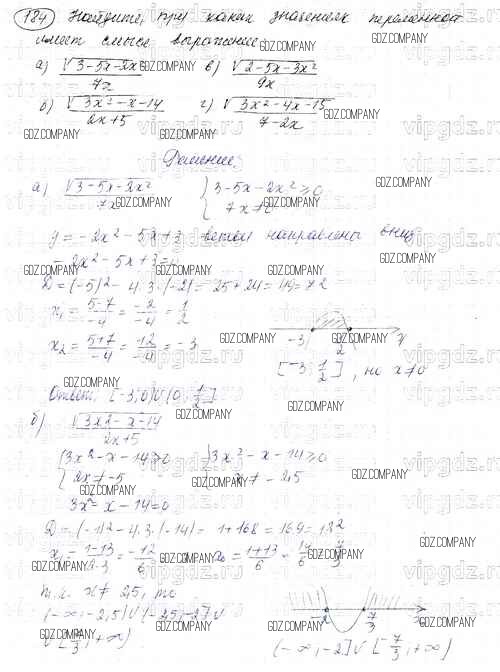 184 Найдите, при каких значениях переменной
имеет смысл выражение
а) √3-5x-2x² / 7x в) √2-5x-3x² / 9x
б) √3x²-x-14 / 2x+5 г) √3x²-4x-15 / 7-2x
Решение:
а) √3-5x-2x² / 7x { 3-5x-2x²≥0
7x≠0
y=-2x²-5x+3 ветви направлены вниз
-2x²-5x+3=0
D=(-5)²-4·3·(-2)=25+24=49=7²
x₁=5-7/-4=-2/-4=1/2
x₂=5+7/-4=12/-4=-3
-3 1/2 x
[-3; 1/2], но x≠0
Ответ: [-3;0)∪(0; 1/2]
б) √3x²-x-14 / 2x+5
{ 3x²-x-14≥0 { 3x²-x-14≥0
2x≠-5 x≠-2,5
3x²-x-14=0
D=(-1)²-4·3·(-14)=1+168=169=13²
x₁=1-13/2·3=-12/6 x₂=1+13/6=14/6=7/3
т.к. x≠2,5, то
(-∞;-2,5)∪(-2,5;-2]∪
∪[7/3;+∞)
-2 7/3 x
(-∞;-2]∪[7/3;+∞)
GDZ.COMPANY
vipgdz.ru